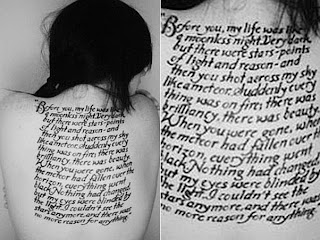 "Before you, my life was like
a moonless night. Very dark,
but there were stars-points
of light and reason-and
then you shot across my sky
like a meteor. Suddenly every
thing was on fire; there was
brilliancy, there was beauty.
When you were gone, when
the meteor had fallen over the
horizon, everything went
black. Nothing had changed,
but my eyes were blinded by
the light. I couldn't see the
stars anymore, and there was
no more reason for anything.
"Before you, my life was
a moonless night. Very dark,
but there were stars-points
of light and reason-and
then you shot across my sky
like a meteor. Suddenly every
thing was on fire; there was
brilliancy, there was beauty.
When you were gone, when
the meteor had fallen over the
horizon, everything went
black. Nothing had changed
but my eyes were blinded by
the light. I couldn't see the
stars anymore, and there was
no more reason for anything.